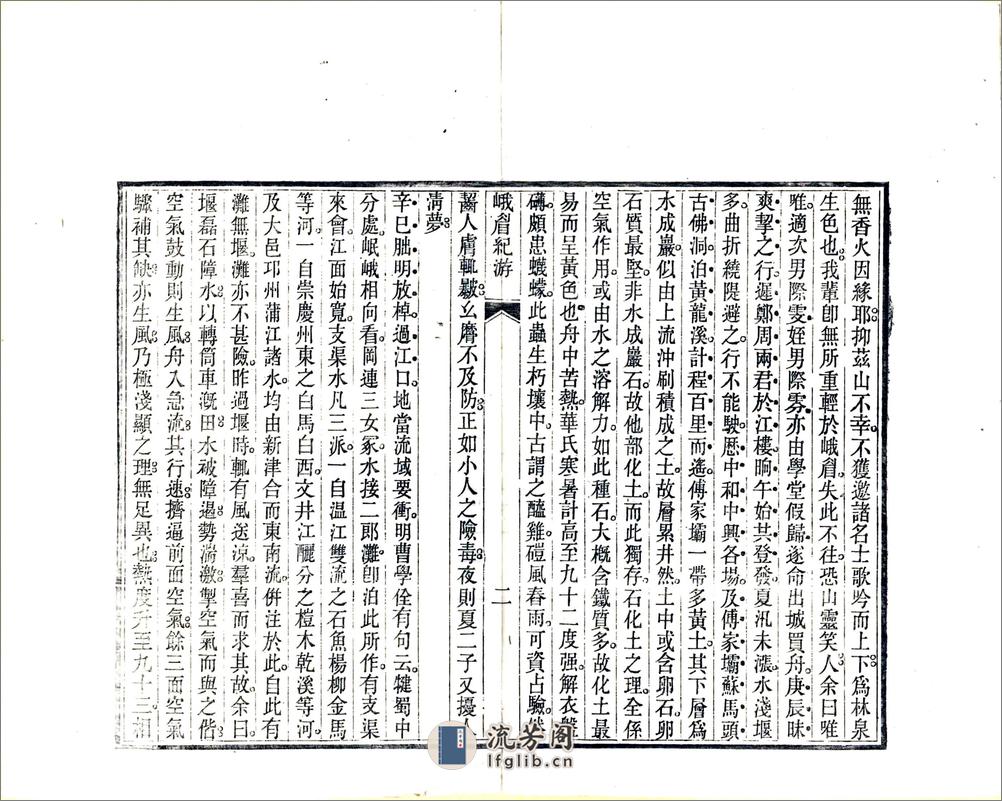 無香火因緣耶抑茲山不幸不獲邀諸名士歌吟而上下爲林泉
生色也我輩卽無所重輕於峨眉失此不往恐山靈笑人余曰唯
唯適次男際雯姪男際雰亦由學堂假歸遂命出城買舟庚辰昧
爽挈之行遲鄭周兩君於江樓晌午始共登發夏汛未漲水淺堰
多曲折繞隄避之行不能駛歷中和中興各場及傅家壩蘇馬頭
古佛洞泊黃龍溪計程百里而遙傅家壩一帶多黃土其下層爲
水成巖似由上流沖刷積成之土故層累井然土中或含卵石卵
石質最堅非水成巖石故他部化土而此獨存石化土之理全係
空氣作用或由水之溶解力如此種石大槪含鐵質多故化土最
易而呈黃色也舟中苦熱華氏寒暑計高至九十二度强解衣盤
礴頗患蠛蠓此蟲生朽壤中古謂之醯雞磑風舂雨可資占驗然
峨眉紀游
二
齧人膚輒皺幺麿不及防正如小人之險毒夜則夏二子又擾人
清夢
辛巳朏明放棹過江口地當流域要衝明曹學佺有句云犍蜀中
分處岷峨相向看岡連三女冢水接二郎灘卽泊此所作有支渠
來會江面始寬支渠水凡三派一自温江雙流之石魚楊柳金馬
等河一自崇慶州東之白馬白西文井江釃分之榿木乾溪等河
及大邑邛州蒲江諸水均由新津合而東南流併注於此自此有
灘無堰灘亦不甚險昨過堰時輒有風送涼羣喜而求其故余曰
堰磊石障水以轉筒車漑田水被障遏勢湍激掣空氣而與之偕
空氣鼓動則生風舟入急流其行速擠逼前面空氣餘三面空氣
驟補其缺亦生風乃極淺顯之理無足異也熱度升至九十三相
流芳阁
lfglib.cn